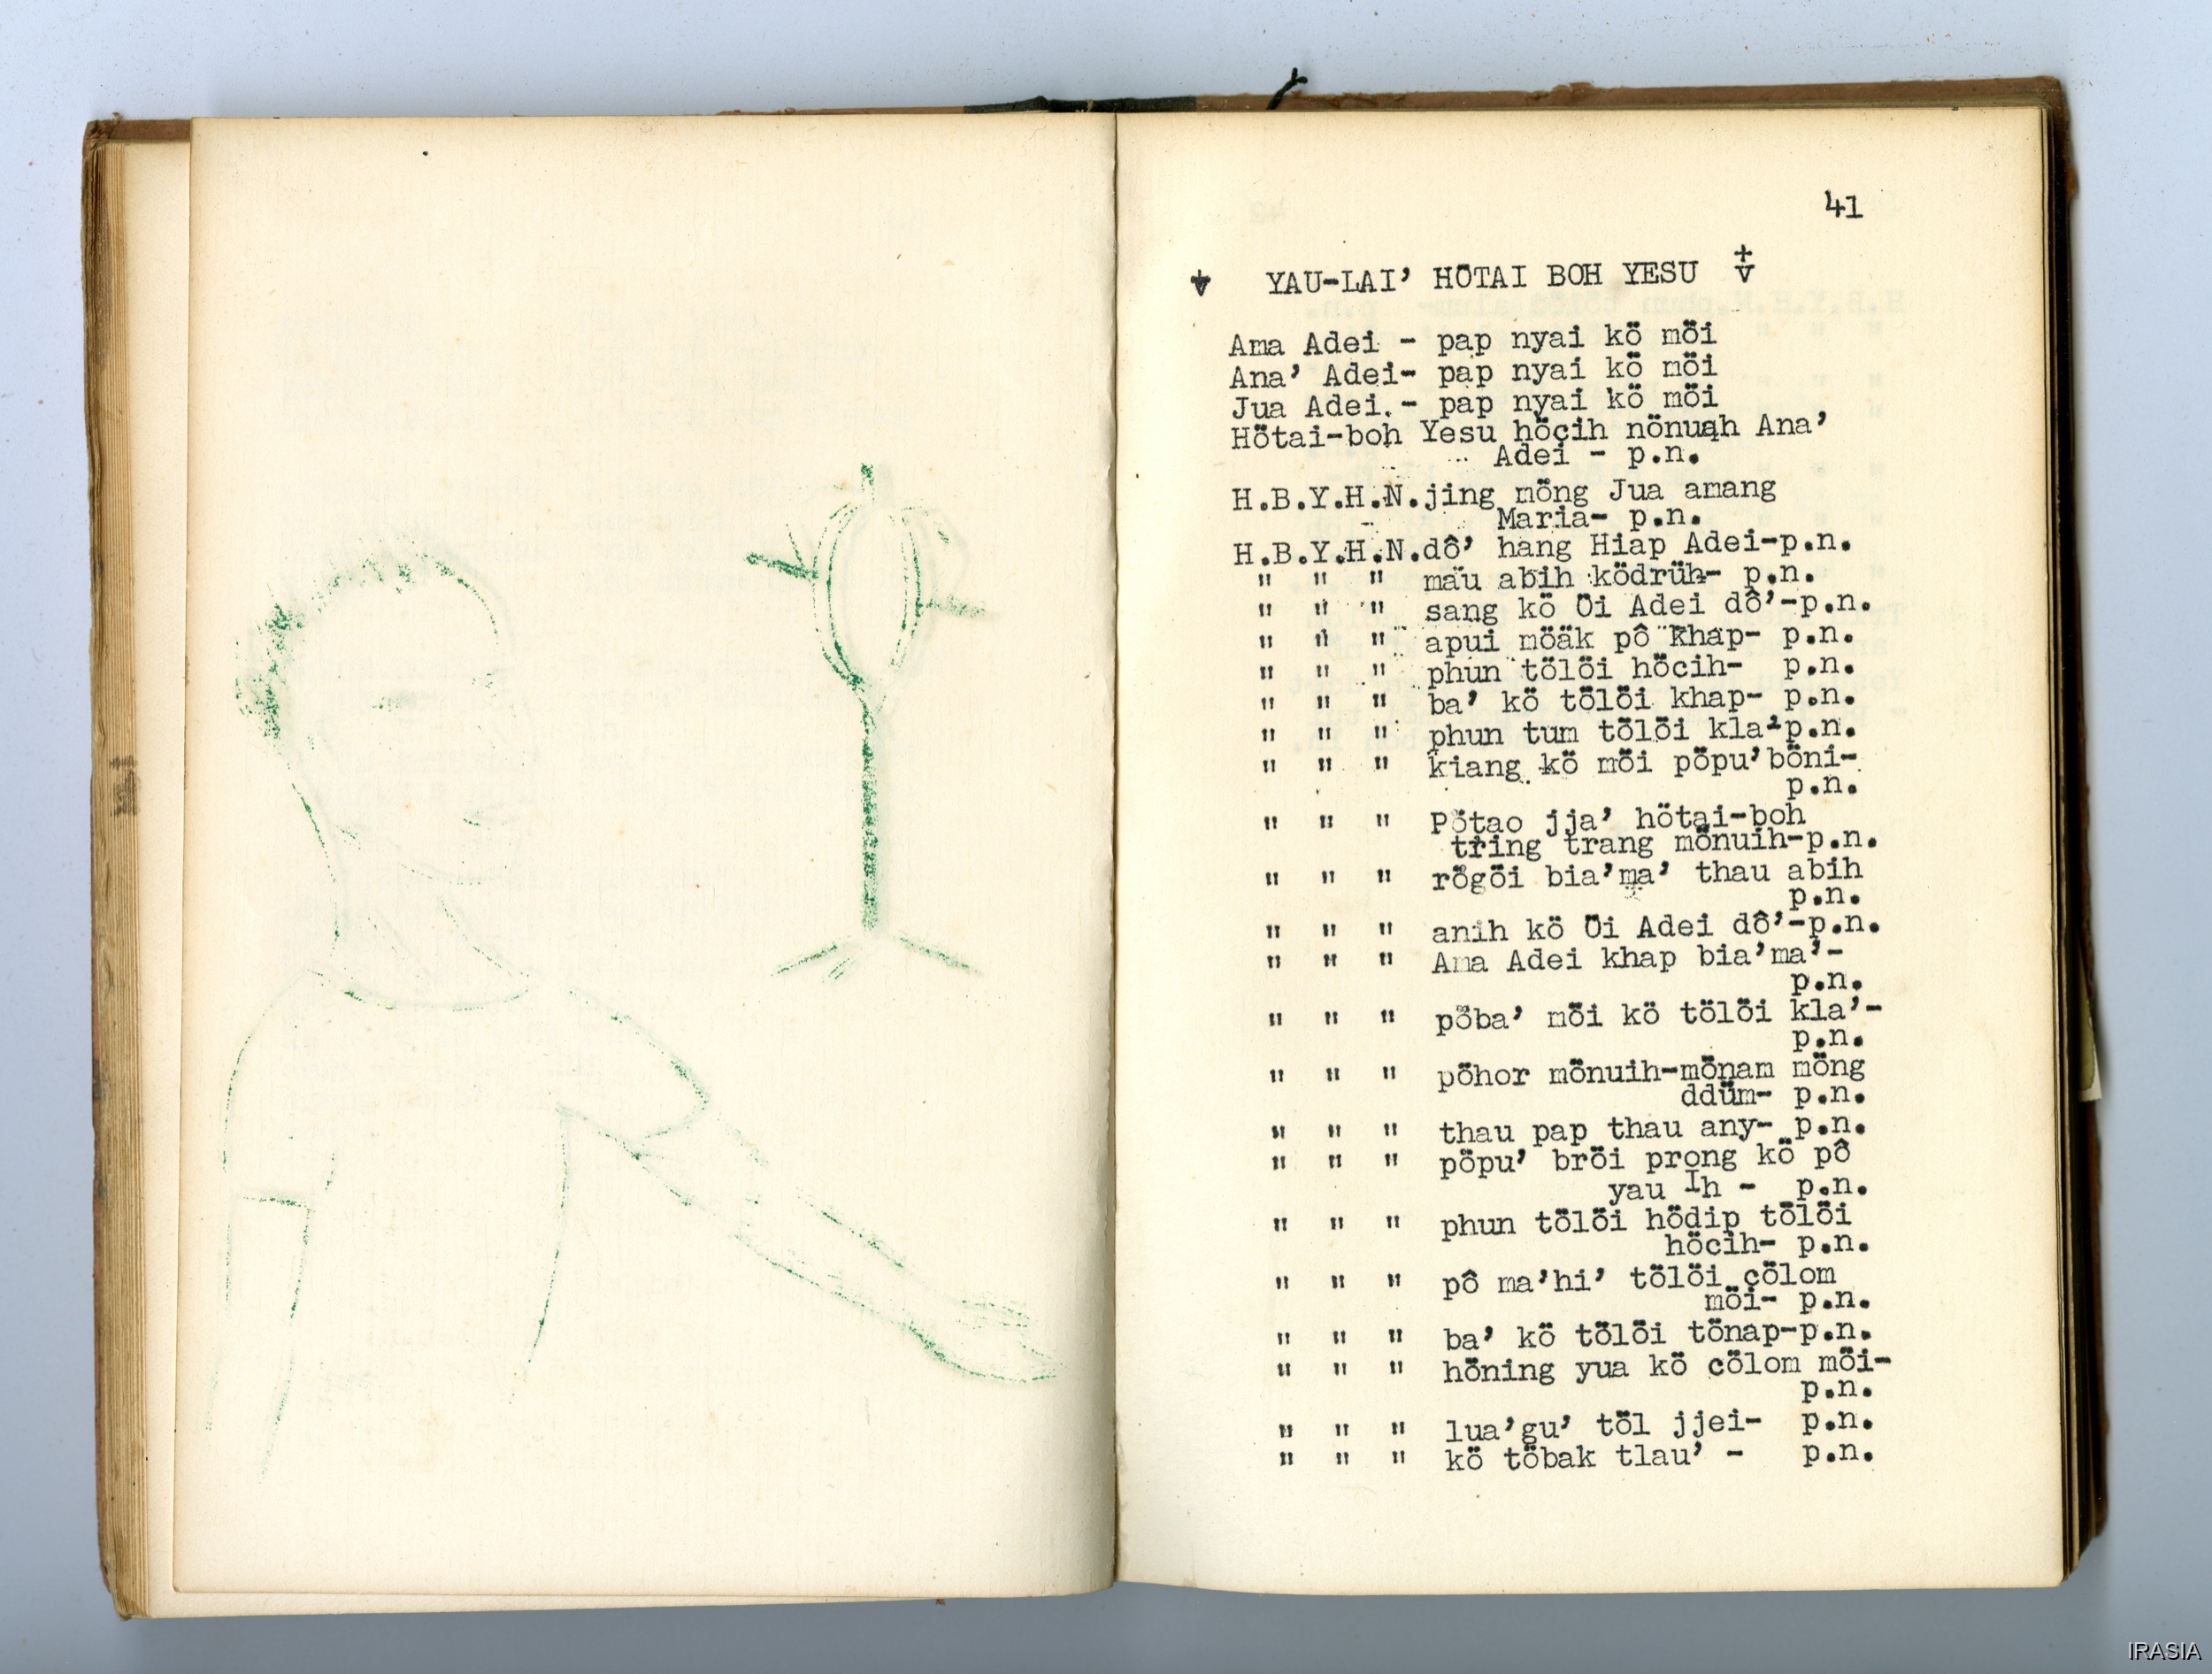 41
YAU-LAI' HÖTAI BOH YESU
Ama Adei - pap nyai kö möi
Ana' Adei- pap nyai kö möi
Jua Adei.- pap nyai kö möi
Hötai-boh Yesu höcih nönuah Ana'
Adei - p.n.
H.B.Y.H.N.jing möng Jua amang
Maria- p.n.
H.B.Y.H.N.dô' hang Hiap Adei-p.n.
" " " mäu abih ködrüh- p.n.
" " " sang kö Öi Adei dô'-p.n.
" " " apui möäk pô khap- p.n.
" " " phun tölöi höcih- p.n.
" " " ba' kö tölöi khap- p.n.
" " " phun tum tölöi kla'-p.n.
" " " kiang kö möi pöpu'böni-
p.n.
" " " Pötao jja' hötai-boh
tring trang mönuih-p.n.
" " " rögöi bia'ma' thau abih
p.n.
" " " anih kö Öi Adei dô'-p.n.
" " " Ama Adei khap bia'ma'-
p.n.
" " " pöba' möi kö tölöi kla'-
p.n.
" " " pöhor mönuih-mönam möng
ddüm- p.n.
" " " thau pap thau any- p.n.
" " " pöpu' bröi prong kö pô
yau Ih - p.n.
" " " phun tölöi hödip tölöi
höcih- p.n.
" " " pô ma'hi' tölöi cölom
möi- p.n.
" " " ba' kö tölöi tönap-p.n.
" " " höning yua kö cölom möi-
p.n.
" " " lua'gu' töl jjei- p.n.
" " " kö töbak tlau' - p.n.
IRASIA